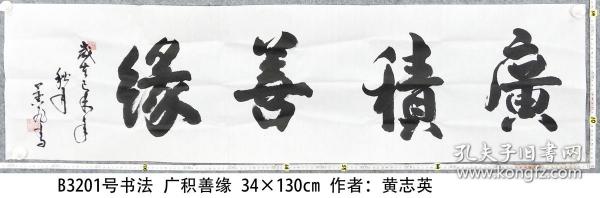 廣積善緣
歲在己未年
秋月
B3201号书法 广积善缘 34×130cm 作者：黄志英
孔夫子旧书网